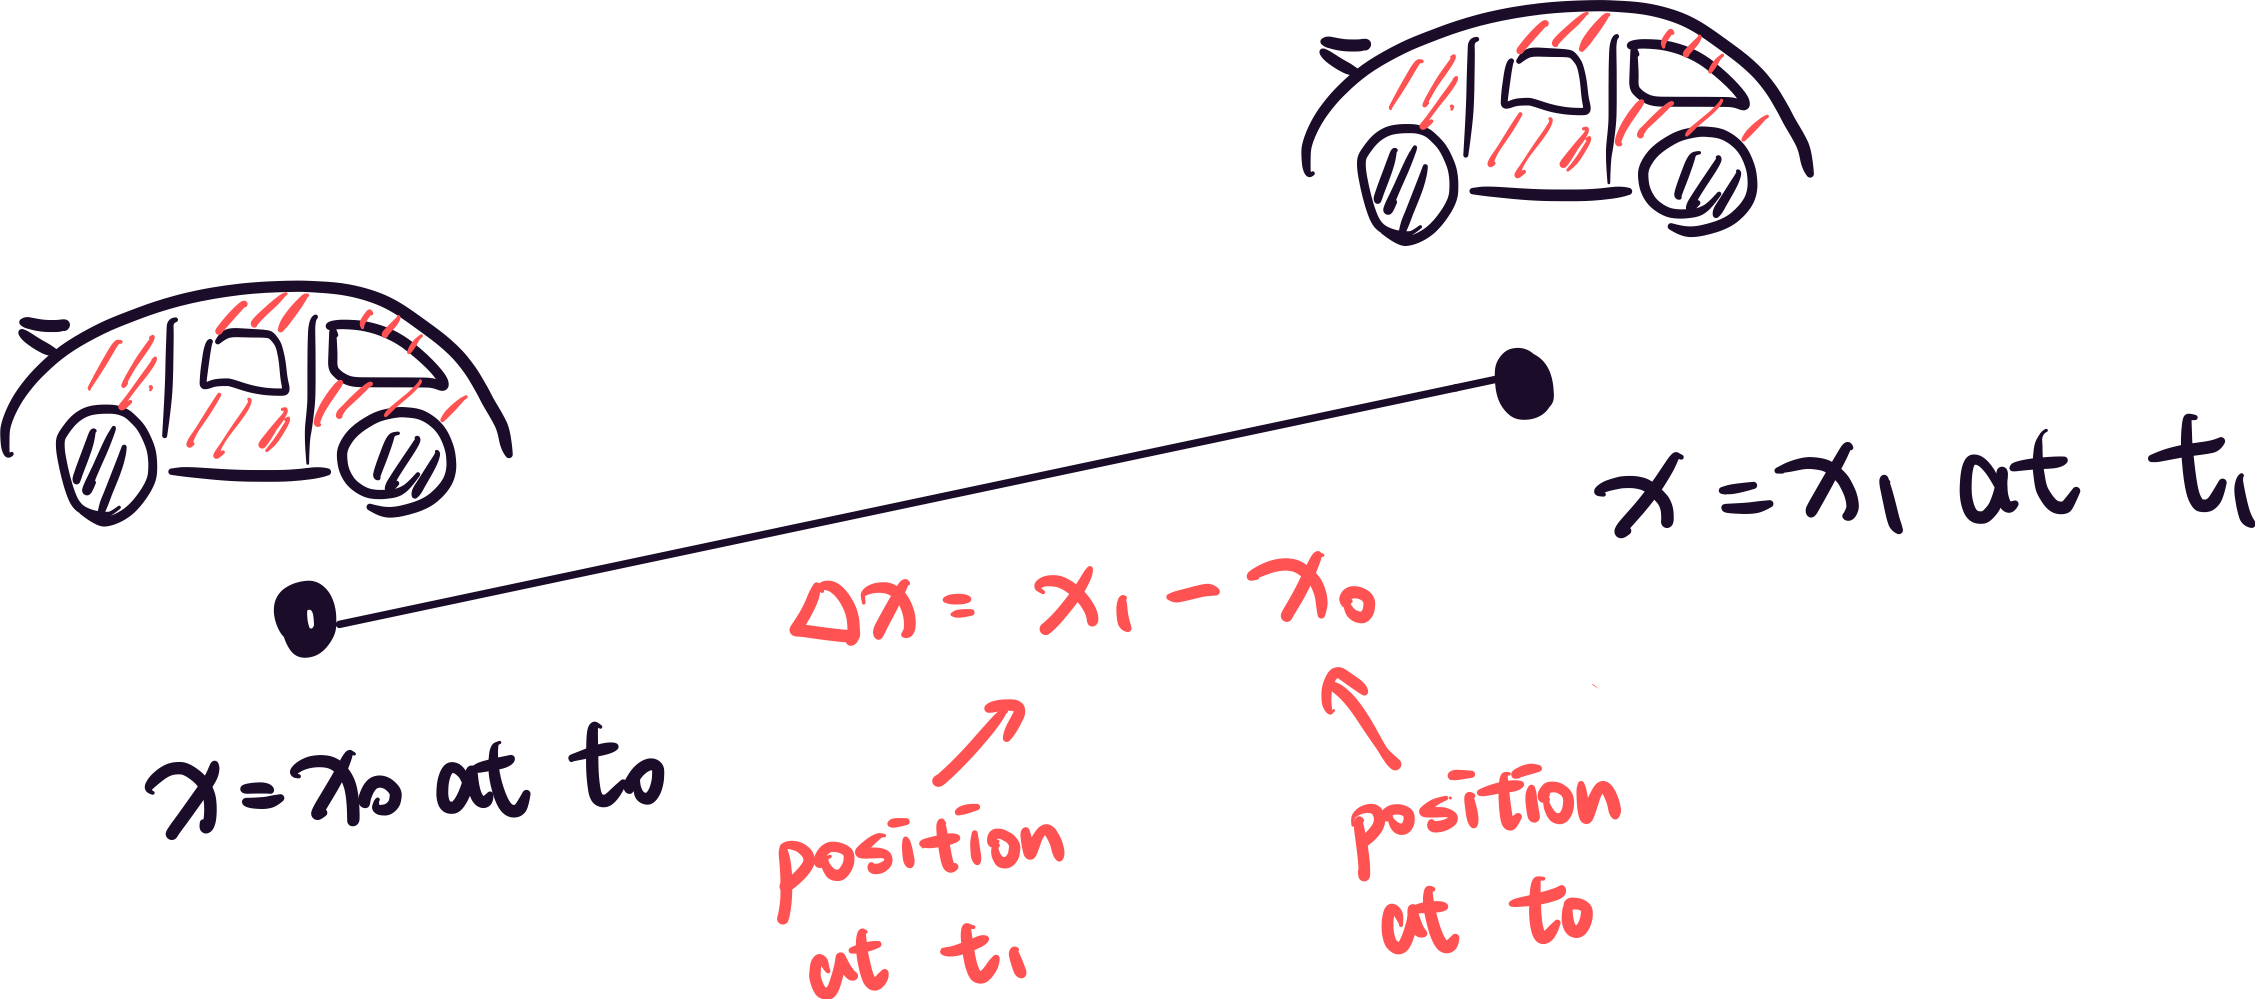 x = x₁ at t₁
Δx = x₁ - x₀
x = x₀ at t₀
position
at t₁
position
at t₀